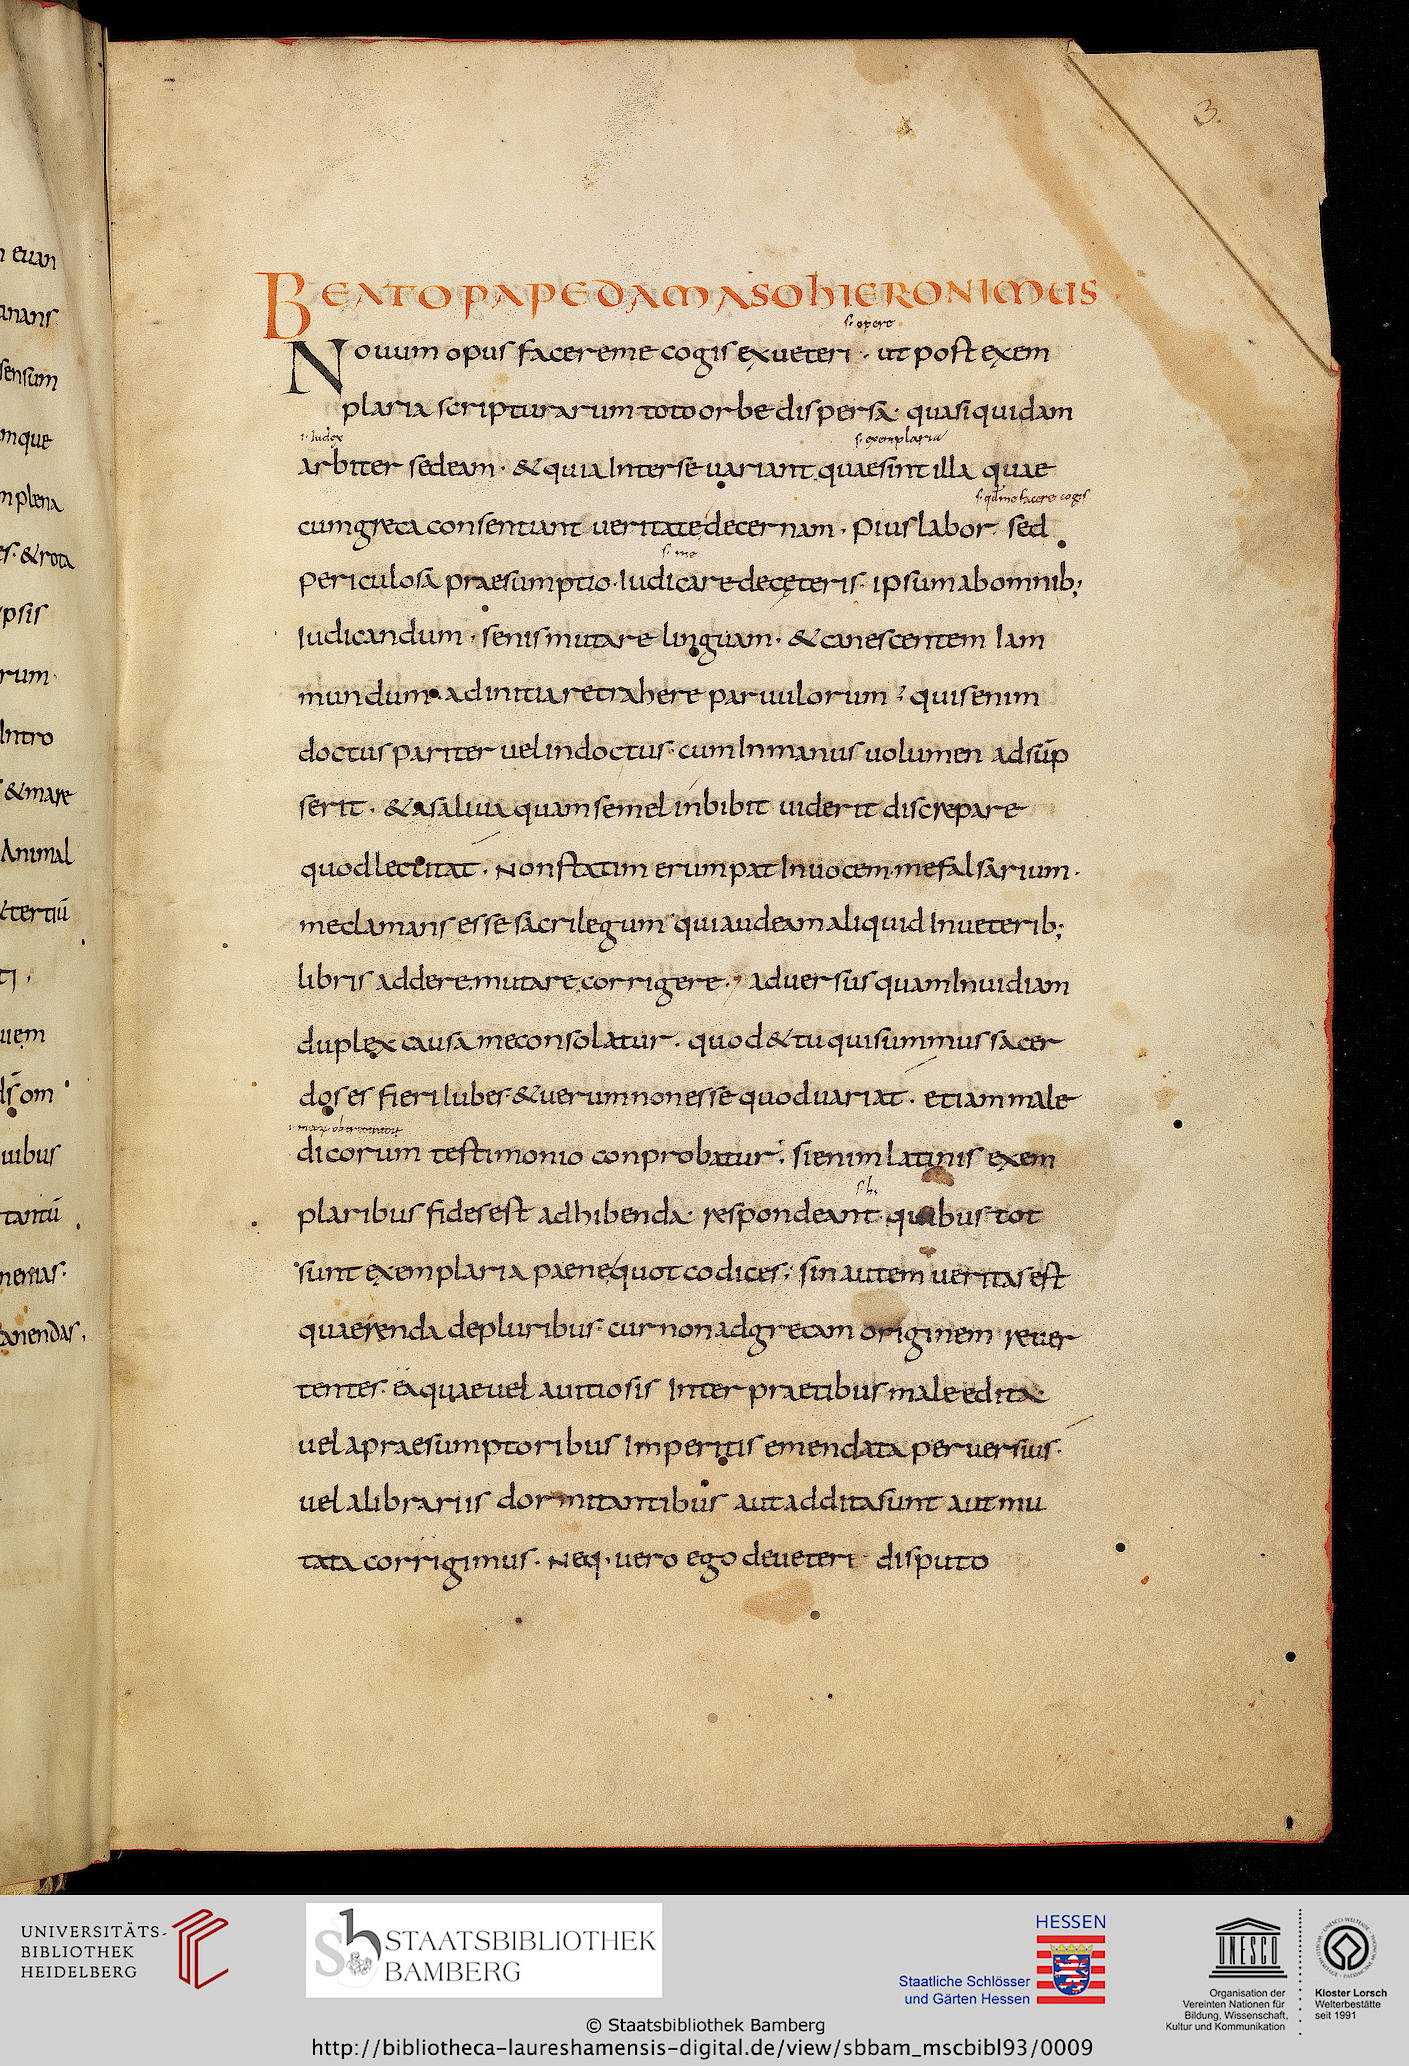 n euan
anans
sensum
mque
mplena
es· &rota
psis
rum·
Intro
&mare
Animal
&tertiū
uem
ds̄ om
uibus
tantū
nemas·
canendas,
3.
BEATO PAPE DAMASO HIERONIMUS
s· opere
Nouum opus facere me cogis ex ueteri · ut post exem
plaria scripturarum toto orbe dispersa· quasi quidam
i· iudex s· exemplaria
arbiter sedeam· & quia Inter se uariant quae sint illa quae
s· qd me facere cogis
cum greca consentiant ueritate decernam · Pius labor· sed
s· me
periculosa praesumptio· Iudicare de ceteris· ipsum ab omnib;
Iudicandum · senis mutare linguam· & canescentem Iam
mundum· ad initia retrahere paruulorum ? quis enim
doctus pariter uel indoctus· cum In manus uolumen adsūp
serit · & a saliua quam semel inbibit uiderit discrepare
quod lectitat · Non statim erumpat In uocem· me falsarium·
me clamans esse sacrilegum qui audeam aliquid In ueterib;
libris addere· mutare· corrigere·, aduersus quam Inuidiam
duplex causa me consolatur· quod & tu qui summus sacer
dos es fieri Iubes· & uerum non esse quod uariat · etiam male
dicorum testimonio conprobatur; si enim latinis exem
s· hi
plaribus fides est adhibenda· respondeant· quibus tot
sunt exemplaria paene quot codices; sin autem ueritas est
quaerenda de pluribus· cur non ad grecam originem reuer
tentes· ea quae uel a uitiosis Inter praetibus male edita·
uel a praesumptoribus Imperitis emendata peruersius·
uel a librariis dormitantibus aut addita sunt aut mu
tata corrigimus· Neq· uero ego de ueteri disputo
UNIVERSITÄTS-
BIBLIOTHEK
HEIDELBERG
sb
STAATSBIBLIOTHEK
BAMBERG
HESSEN
Staatliche Schlösser
und Gärten Hessen
UNESCO
Organisation der
Vereinten Nationen für
Bildung, Wissenschaft,
Kultur und Kommunikation
Kloster Lorsch
Welterbestätte
seit 1991
© Staatsbibliothek Bamberg
http://bibliotheca-laureshamensis-digital.de/view/sbbam_mscbibl93/0009